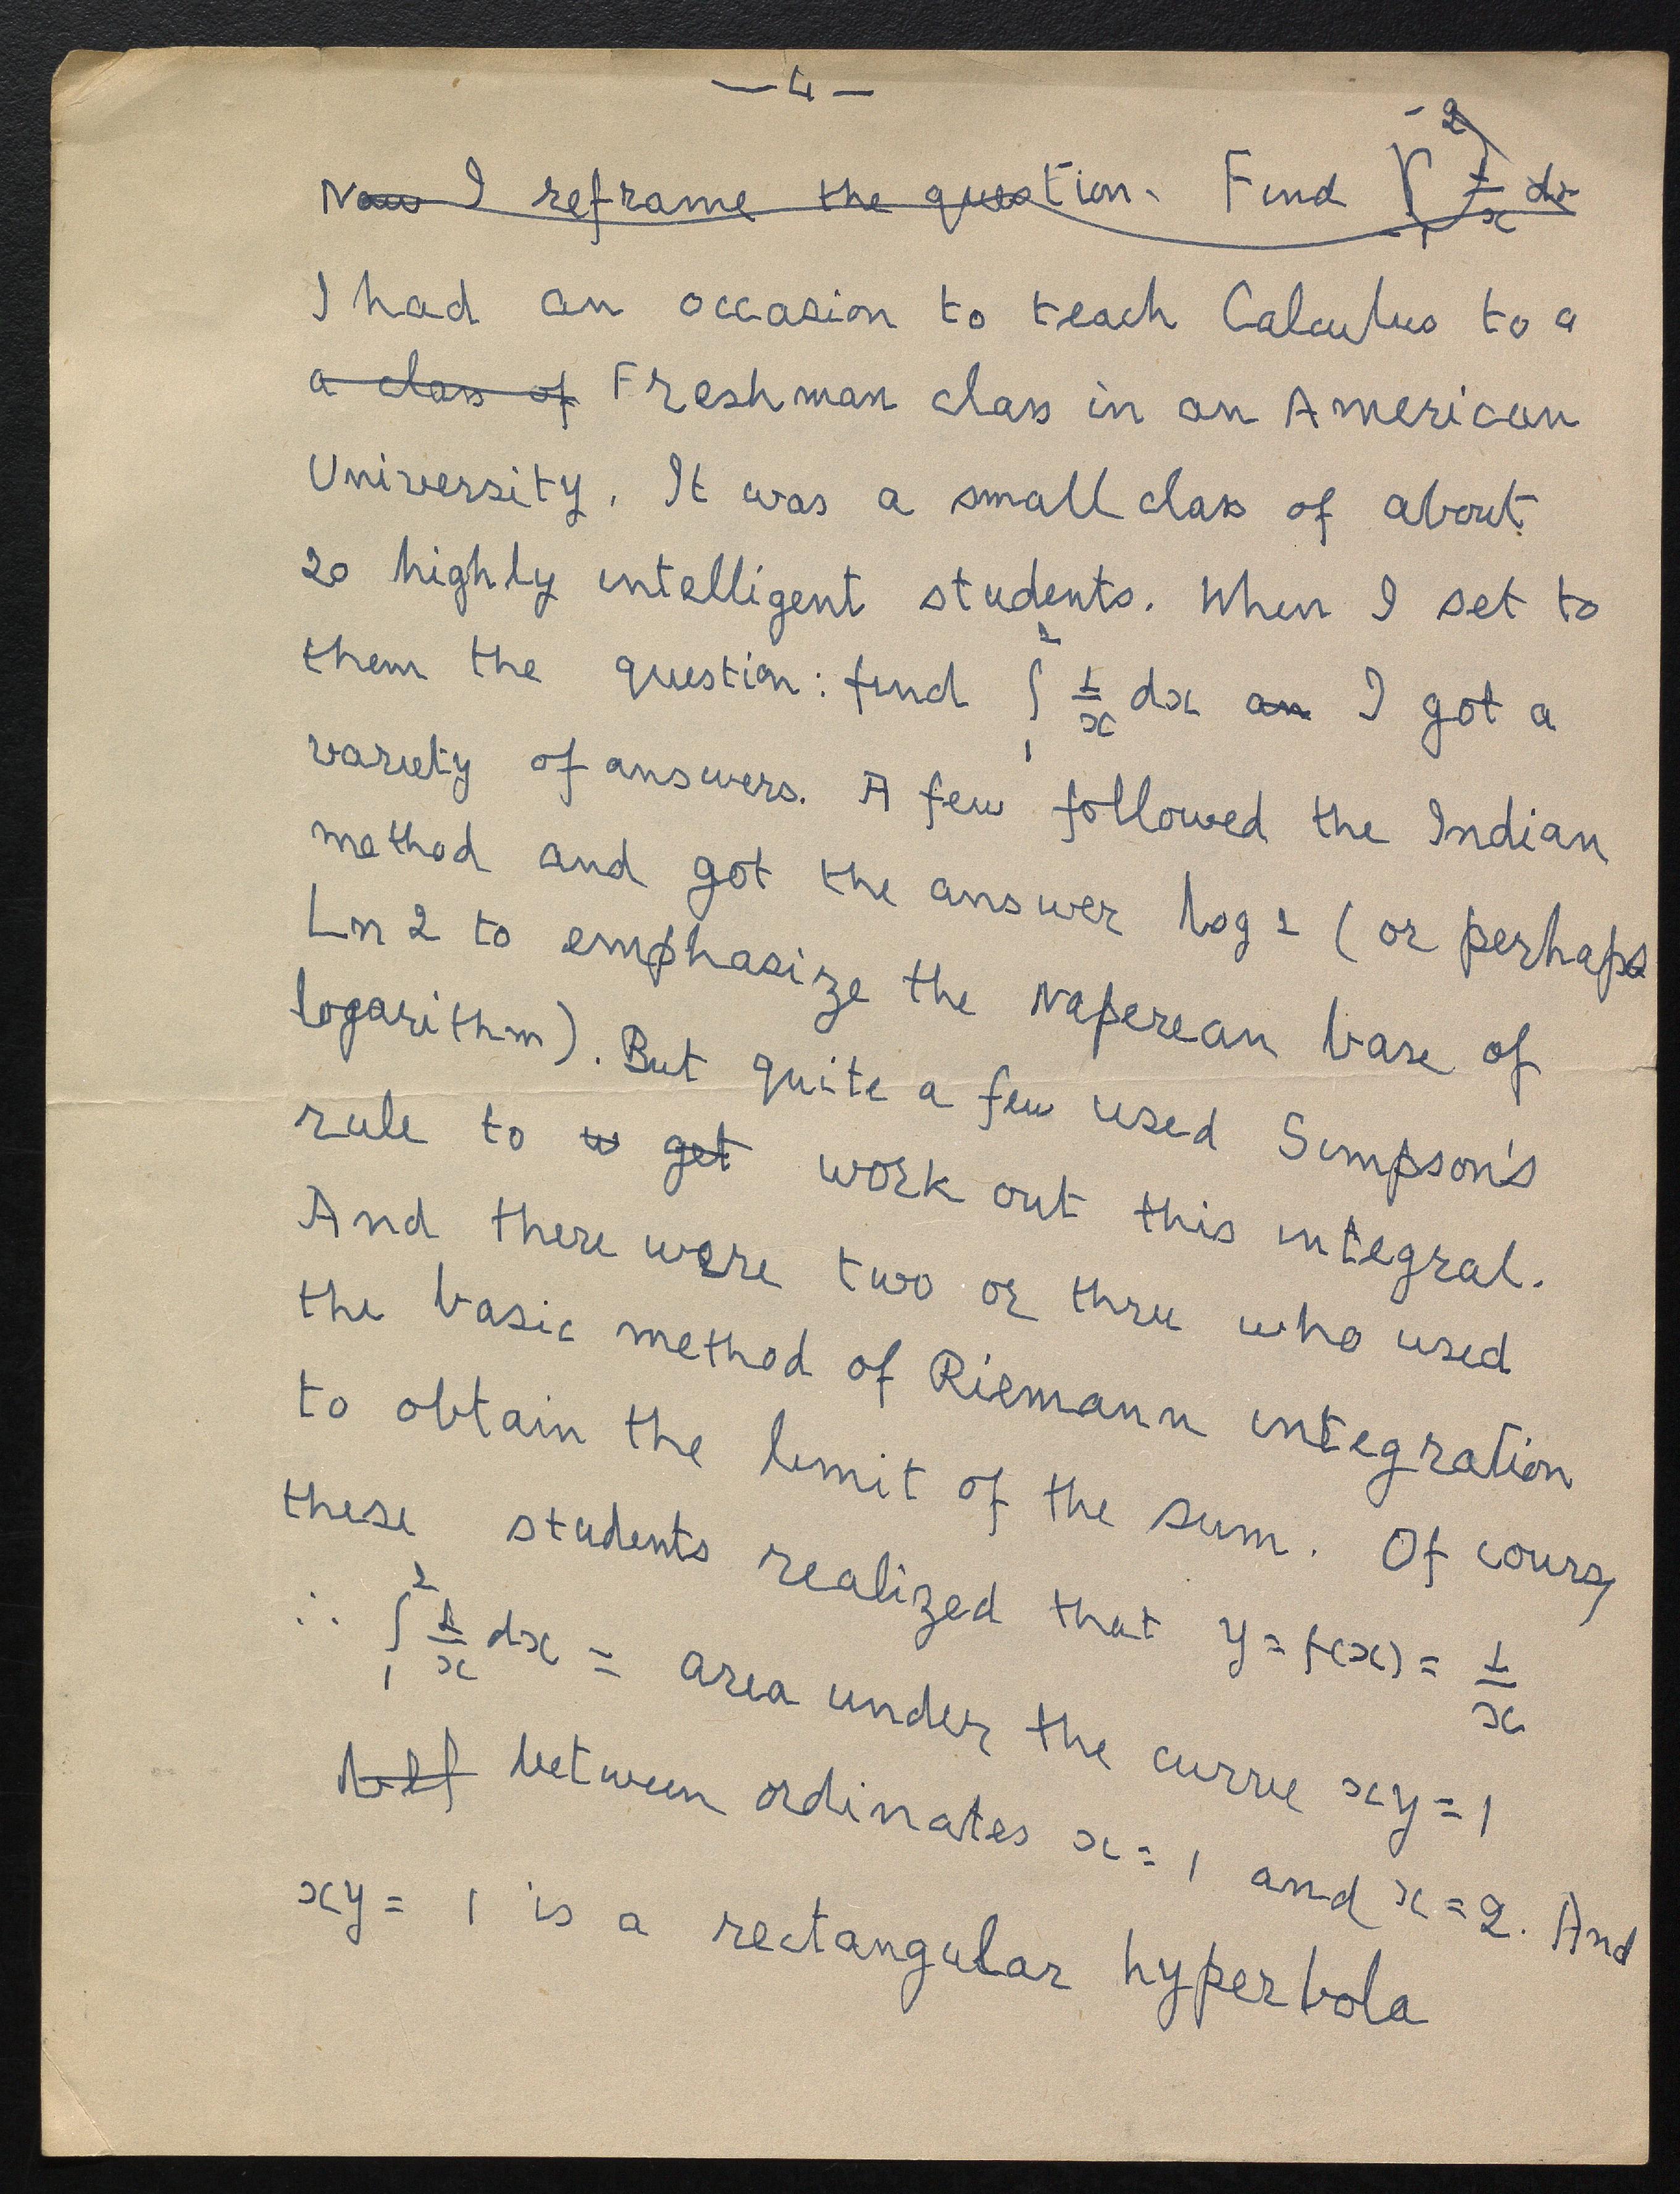 — 4 —
Now I reframe the question. Find ∫₁² 1/x dx
I had an occasion to teach Calculus to a
a class of Freshman class in an American
University. It was a small class of about
20 highly intelligent students. When I set to
them the question: find ∫₁² 1/x dx an I got a
variety of answers. A few followed the Indian
method and got the answer log 2 (or perhaps
Ln 2 to emphasize the Naperean base of
logarithm). But quite a few used Simpson's
rule to w get work out this integral.
And there were two or three who used
the basic method of Riemann integration
to obtain the limit of the sum. Of course,
these students realized that y = f(x) = 1/x
∴ ∫₁² 1/x dx = area under the curve xy = 1
between ordinates x = 1 and x = 2. And
xy = 1 is a rectangular hyperbola